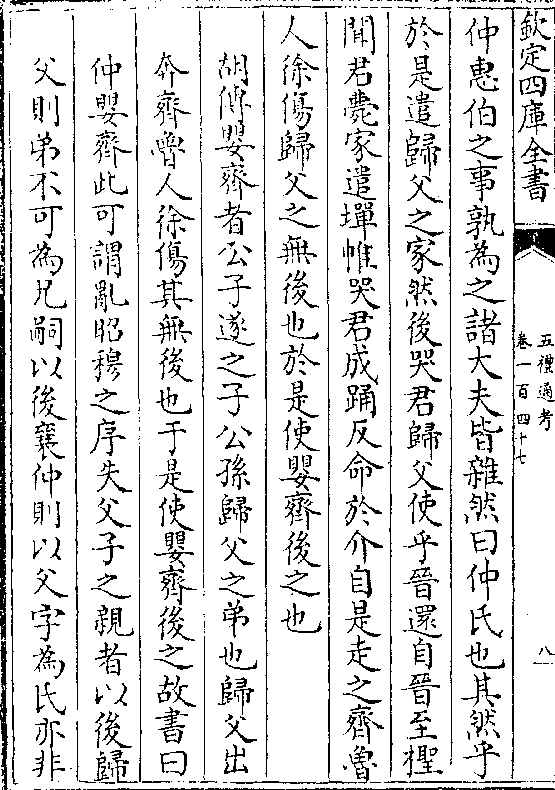 欽定四庫全書
五禮通考
卷一百四十七
八
仲惠伯之事孰為之諸大夫皆雜然曰仲氏也其然乎
於是遣歸父之家然後哭君歸父使乎晉還自晉至檉
聞君薨家遣墠帷哭君成踊反命於介自是走之齊魯
人徐傷歸父之無後也於是使嬰齊後之也
胡傳嬰齊者公子遂之子公孫歸父之弟也歸父出
奔齊魯人徐傷其無後也于是使嬰齊後之故書曰
仲嬰齊此可謂亂昭穆之序失父子之親者以後歸
父則弟不可為兄嗣以後襄仲則以父字為氏亦非